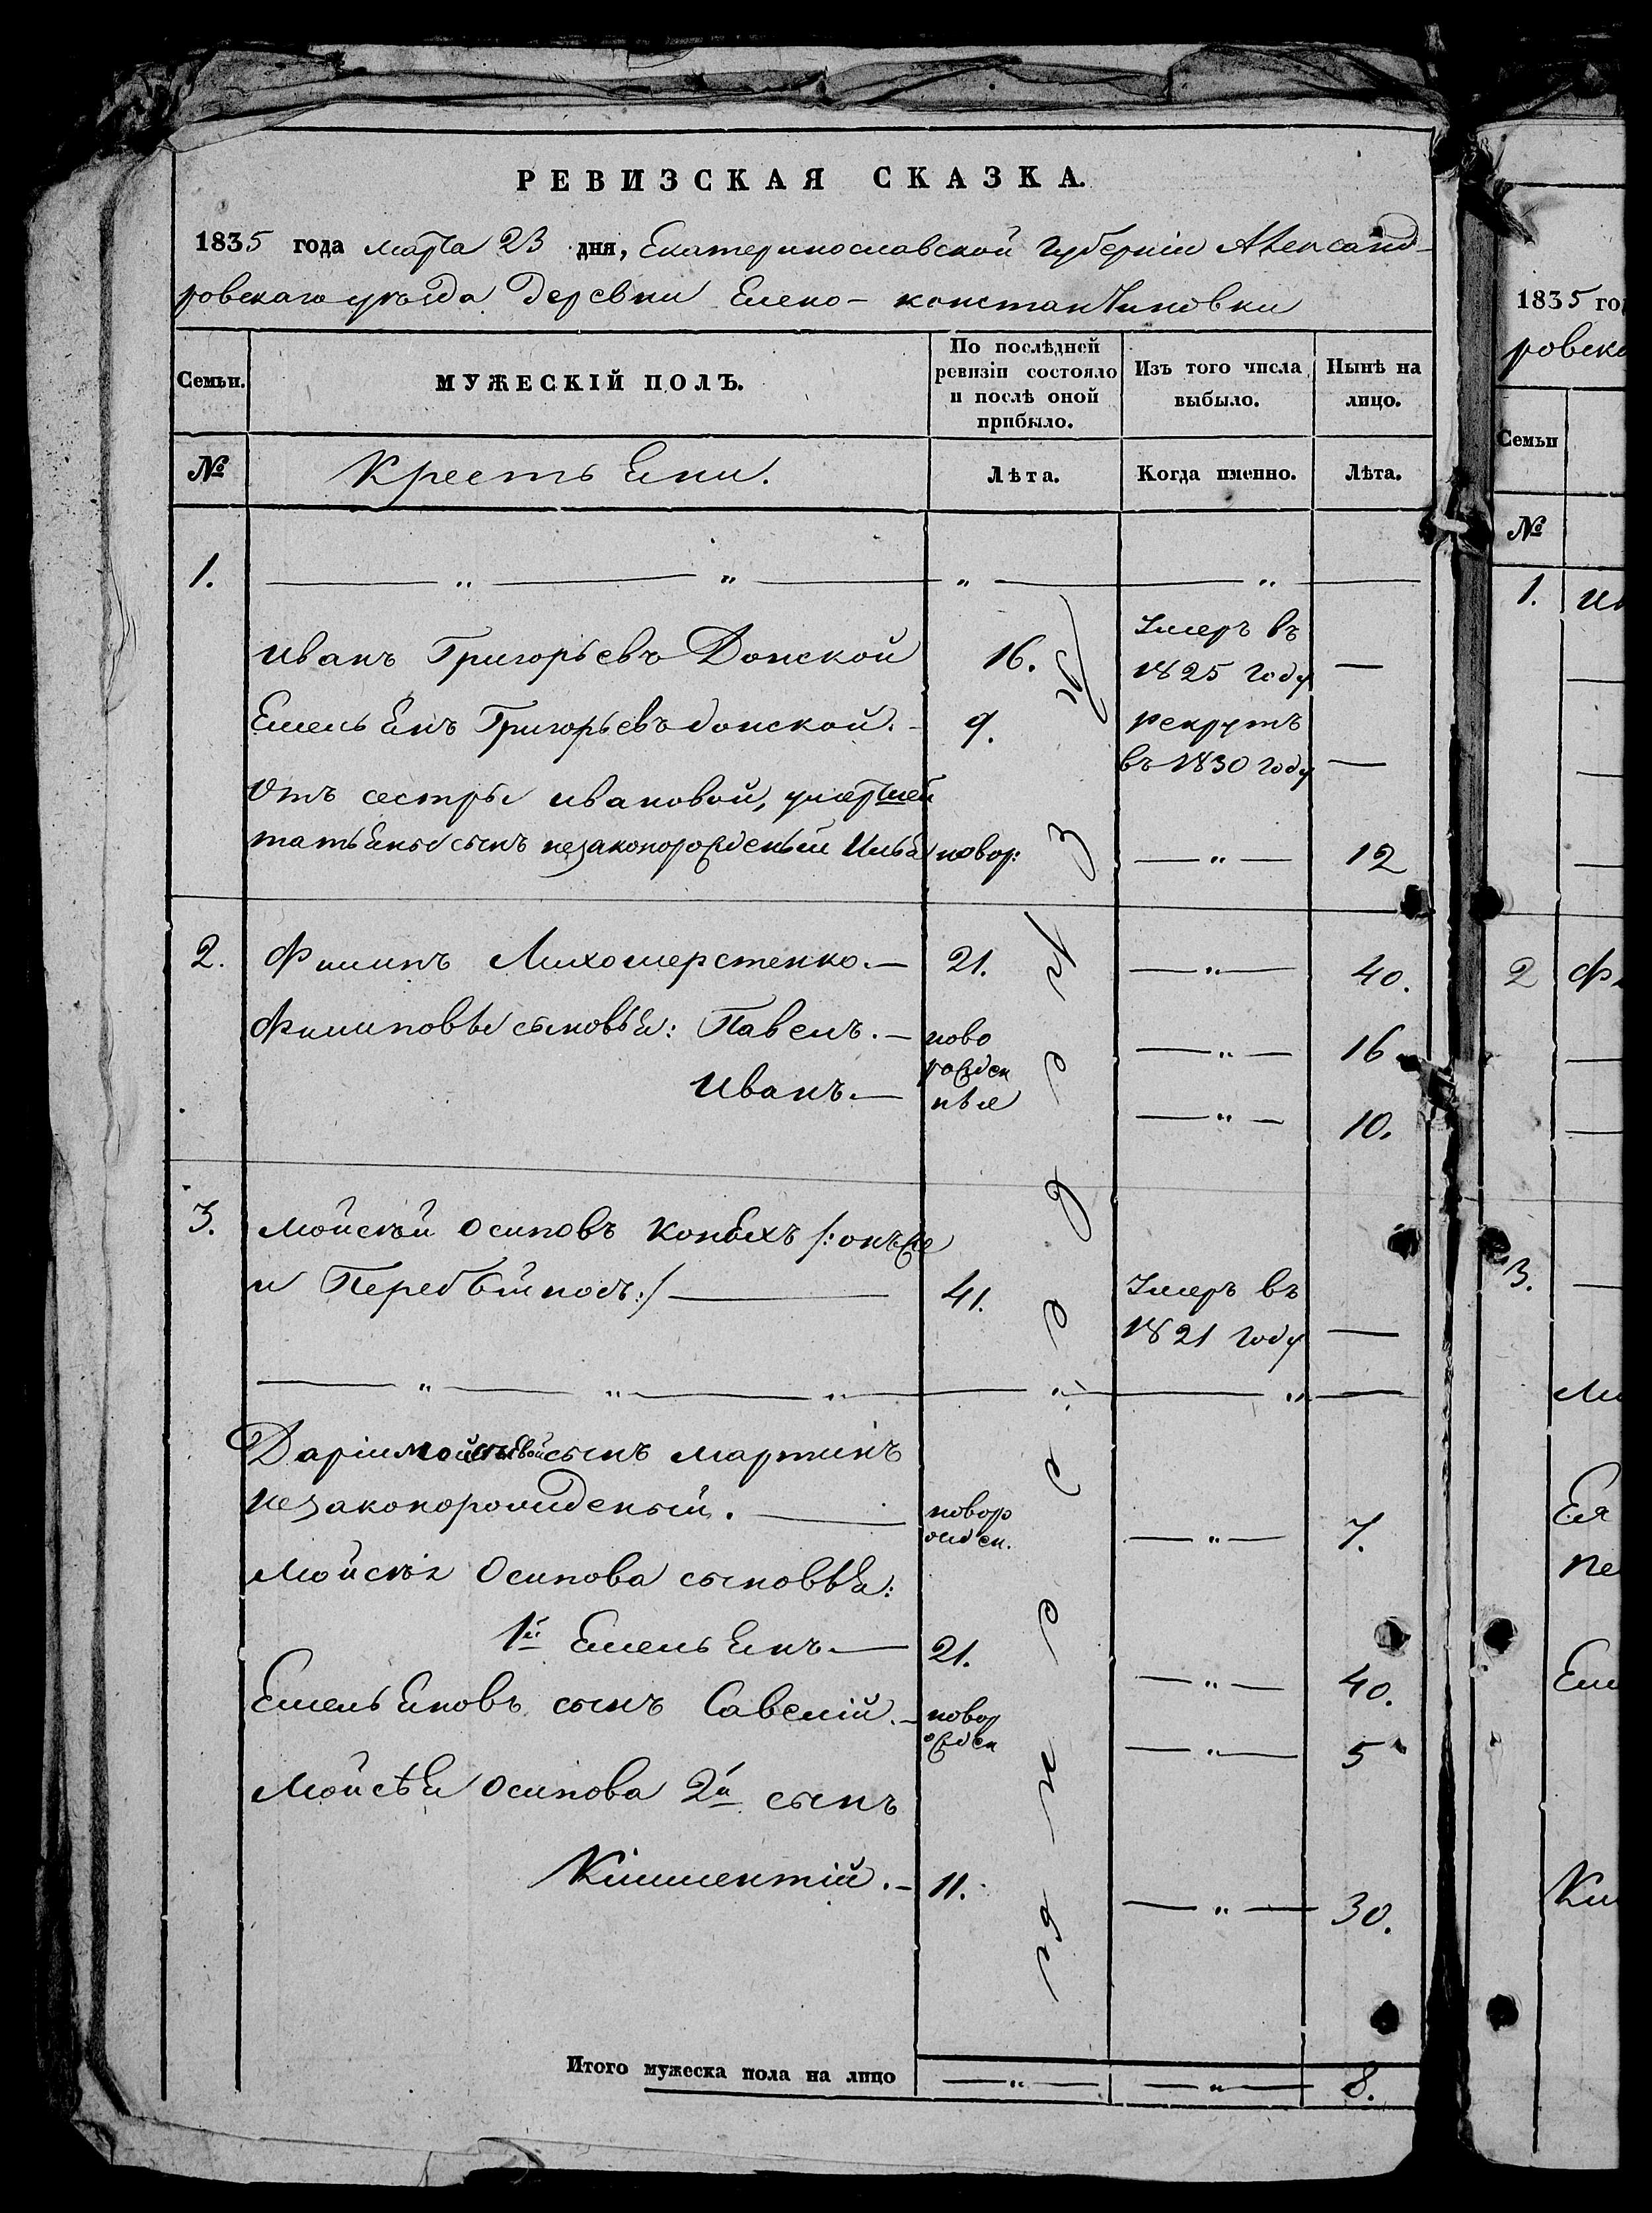 РЕВИЗСКАЯ СКАЗКА.
1835 года марта 23 дня, Екатеринославской Губерніи Александ-
ровскаго уѣзда деревни Елено-константиновки
Семьи.
МУЖЕСКІЙ ПОЛЪ.
По послѣдней ревизіи состояло и послѣ оной прибыло.
Изъ того числа выбыло.
Нынѣ на лицо.
№ Крестьяни. Лѣта. Когда именно. Лѣта.
1. — „ — „ — „ — „ —
Иванъ Григорьевъ Донской 16. Умеръ въ 1825 году —
Емельянъ Григорьевъ донской. 9. рекрутъ въ 1830 году —
Отъ сестры ивановой, умершей
татьяны сынъ незаконорожденый Илья новор: — „ — 12
2. Филипъ Лихошерстенко. — 21. — „ — 40.
Филиповы сыновья: Павелъ. — ново — „ — 16
рожден
Иванъ. — ныя — „ — 10.
3. Мойсей Осиповъ
и 41. Умеръ въ
1821 году —
— „ — „ — „ — „ — „ —
Даріи мойсѣевой сынъ мартинъ
незаконорожденый. — новор
ожден. — „ — 7.
Мойсѣя Осипова сыновья:
1й Емельянъ — 21. — „ — 40.
Емельяновъ сынъ Савелій. — новор
ожден — „ — 5
Мойсѣя Осипова 2й сынъ
Климентій. — 11. — „ — 30.
Итого мужеска пола на лицо — „ — — „ — 8.
1835 го
ровска
Семьи
№
1. Ив
2 Фи
3.
Мо
Ея
не
Еме
Кли